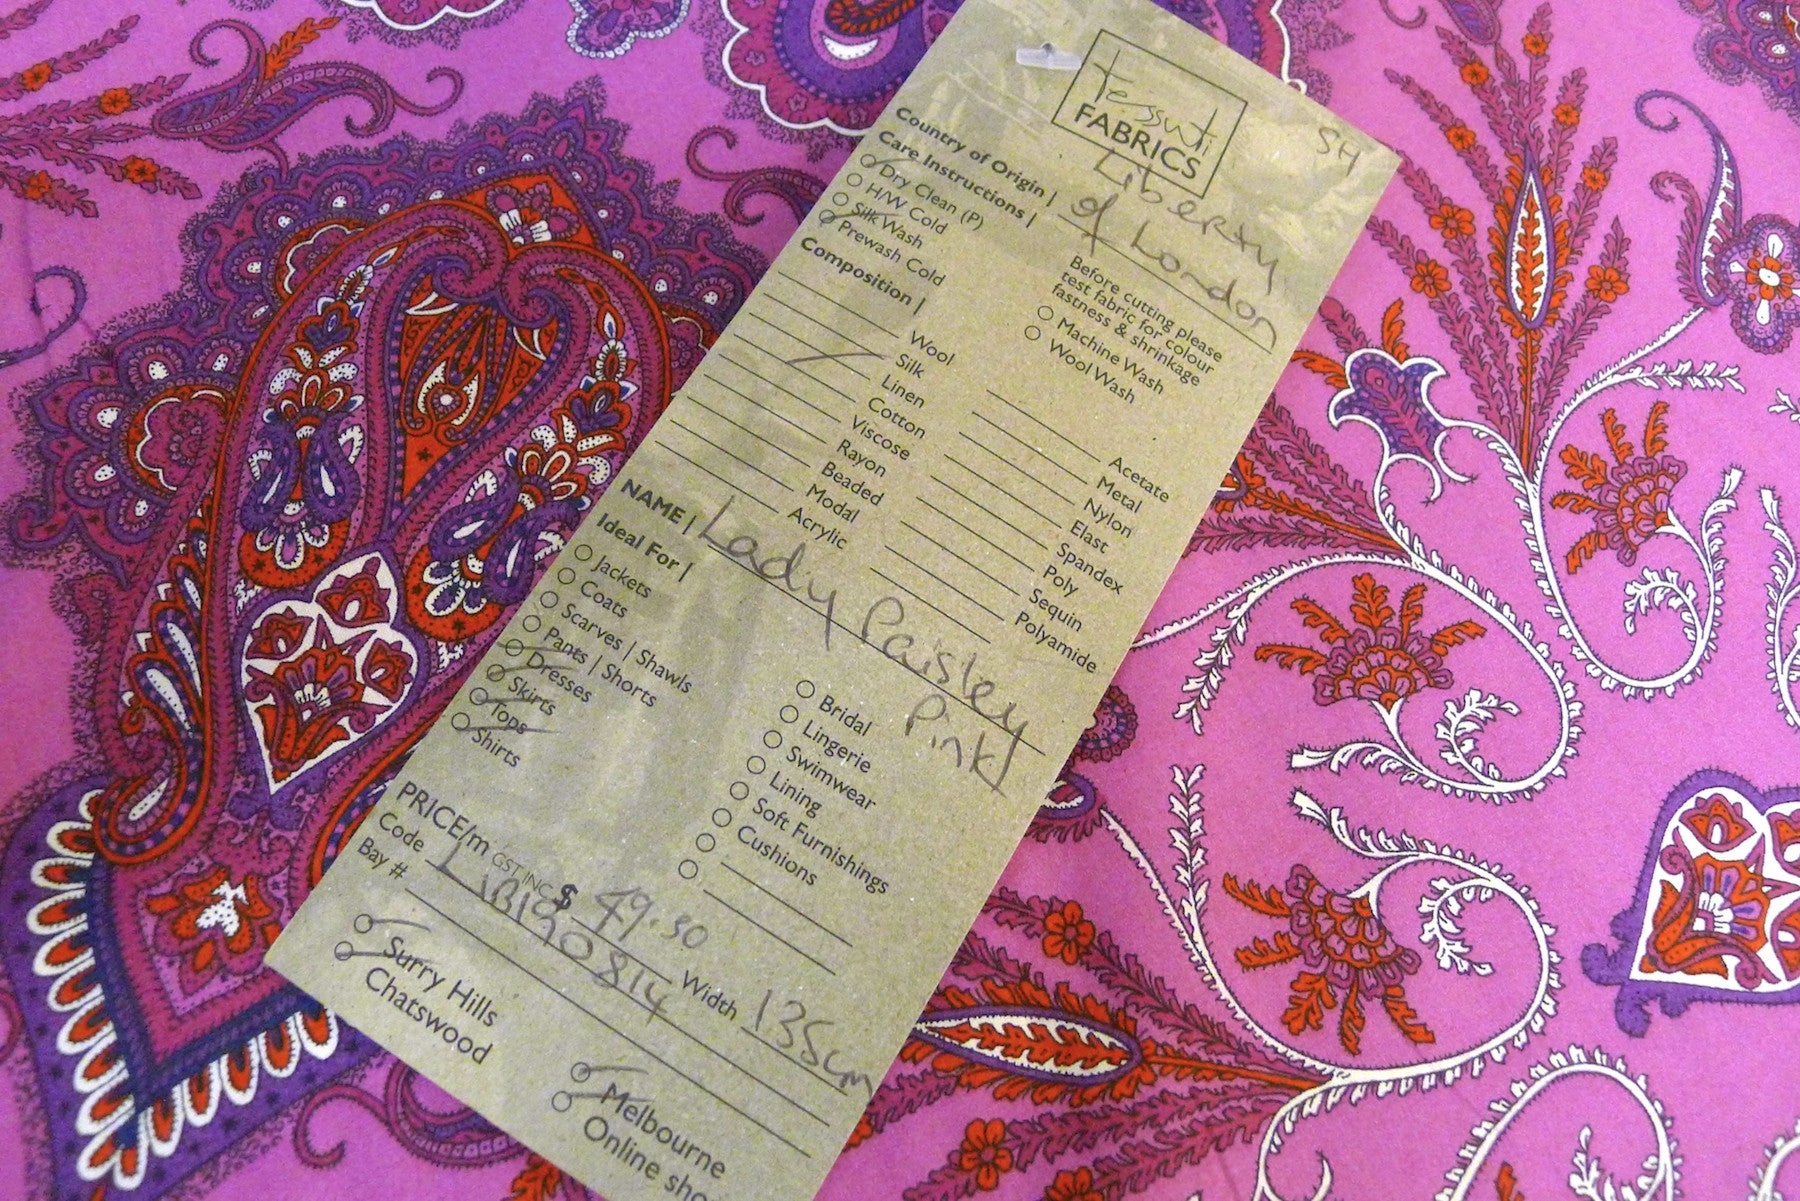 tessuti
FABRICS
SH
Country of Origin | Liberty
of London
Care Instructions |
Dry Clean (P)
H/W Cold
Silk Wash
Prewash Cold
Before cutting please
test fabric for colour
fastness & shrinkage
Machine Wash
Wool Wash
Composition |
Wool
Silk
Linen
Cotton
Viscose
Rayon
Beaded
Modal
Acrylic
Acetate
Metal
Nylon
Elast
Spandex
Poly
Sequin
Polyamide
NAME | Lady Paisley
Pink
Ideal For |
Jackets
Coats
Scarves | Shawls
Pants | Shorts
Dresses
Skirts
Tops
Shirts
Bridal
Lingerie
Swimwear
Lining
Soft Furnishings
Cushions
PRICE/m GST INC $ 49.50
Code Width 135cm
Bay #
Surry Hills
Chatswood
Melbourne
Online sho